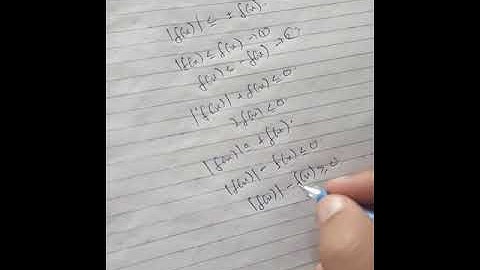 |f(x)| ≤ ± f(x).
|f(x)| ≤ f(x) →
f(x) ≤ - f(x) →
|f(x)| + f(x) ≤ 0
2f(x) ≤ 0.
|f(x)| = ± f(x).
|f(x)| - f(x) ≤ 0
|f(x)| - f(x) ≥ 0